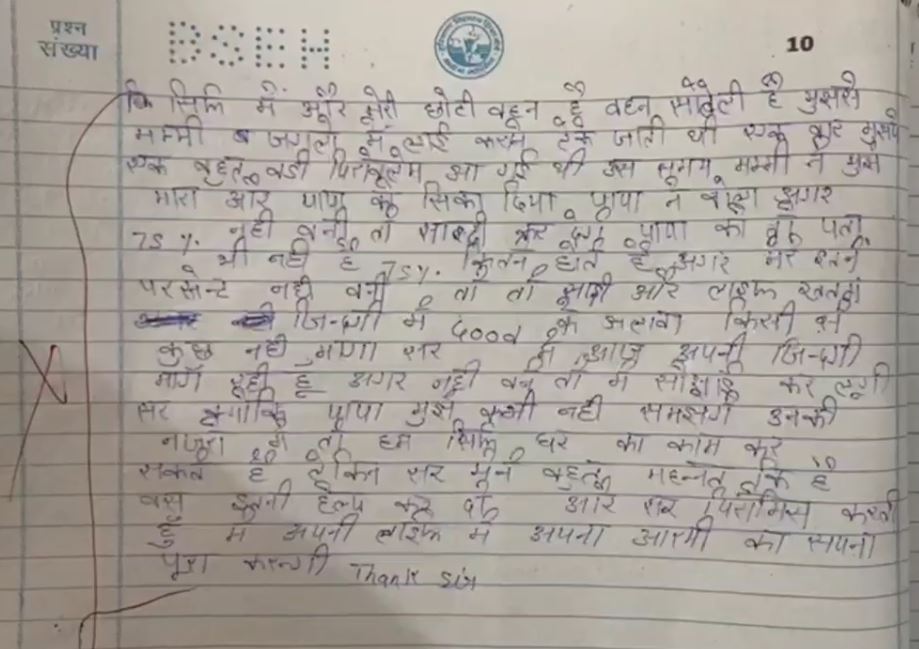 प्रश्न
संख्या
BSEH
10
कि सिर्फ में और मेरी छोटी बहन है बहन सोतेली है मुझसे
मम्मी जगती में लाई करने टक जाती थी एक बार मुझपे
एक बहुत बडी पिरोबलम आ गई थी उस समय मम्मी ने मुझे
मारा और पापा को सिका दिया पापा ने बोला अगर
75 %. नही बनी तो सादी कर दुगा पापा को ये पता
भी नही है 75%. कितने होते है अगर मेरे इतने
परसेन्ट नही बनी तो तो सादी और लाइफ खतम
जिन्दगी में good के अलावा किसी से
कुछ नही मांगा सर में आज अपनी जिन्दगी
मांग रही हू अगर नही बने तो में सोसाइड कर लूगी
सर क्योकि पापा मुझे कभी नही समझेगे उनकी
नजरो में तो हम सिर्फ घर का काम कर
सकते है लेकिन सर मेने बहुत महन्नत की है
बस इतनी हेल्प कर दो और सर पिरोमिस करती
हूँ में अपनी लाइफ में अपना आरमी का सपना
पूरा करुगी Thank sir